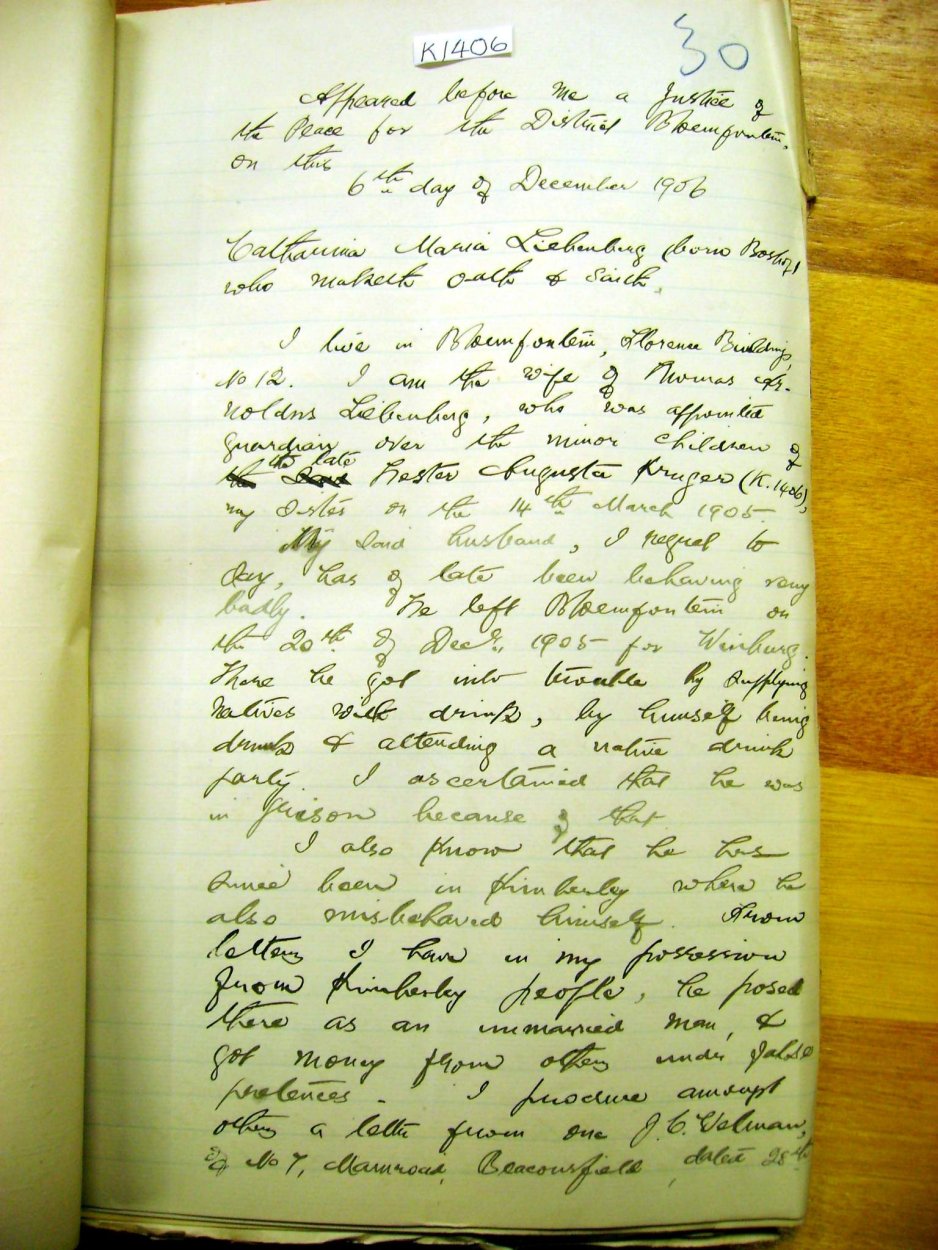 K1406
30
Appeared before me a Justice of
the Peace for the District Bloemfontein,
on this
6th day of December 1906
Catharina Maria Liebenberg (born Boshof)
who maketh oath & saith.
I live in Bloemfontein, Florence Building,
No 12. I am the wife of Thomas Ar-
noldus Liebenberg, who was appointed
guardian over the minor children of
the late Hester Augusta Kruger (K.1406),
my sister on the 14th March 1905.
My said husband, I regret to
say, has of late been behaving very
badly. He left Bloemfontein on
the 20th of Decr., 1905 for Winburg.
There he got into trouble by supplying
natives with drink, by himself being
drunk & attending a native drink
party. I ascertained that he was
in prison because of that.
I also know that he has
since been in Kimberley where he
also misbehaved himself. From
letters I have in my possession
from Kimberley people, he posed
there as an unmarried man, &
got money from others under false
pretences. I produce amongst
others a letter from one J.C. Velman,
of No 7, Main road, Beaconsfield, dated 28th